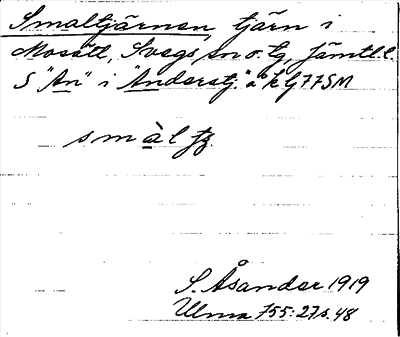 Smaltjärnen, tjärn i
Mosätt, Svegs sn o. tg, Jämtl.l.
S "An" i "Anderstj." å k G 77 SM
smàltj.
S. Åsander 1919
Ulma 755:27 s. 48